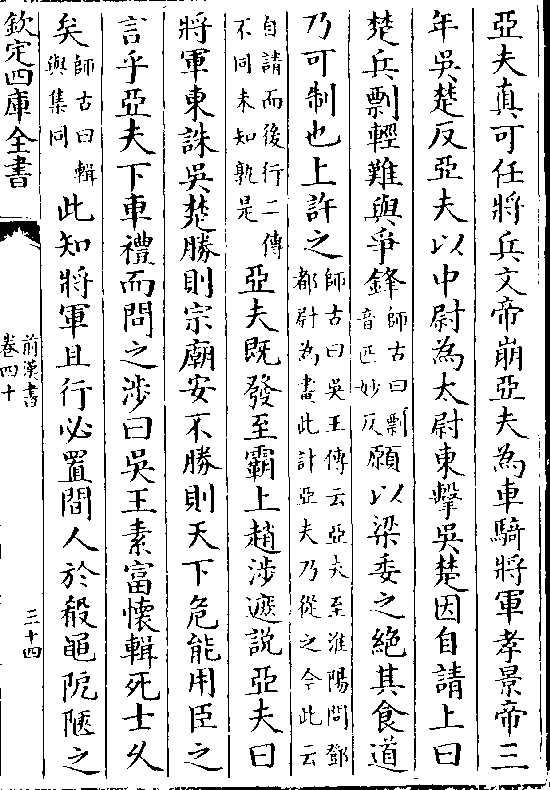 亞夫真可任將兵文帝崩亞夫為車騎將軍孝景帝三
年吳楚反亞夫以中尉為太尉東擊吳楚因自請上曰
楚兵剽輕難與爭鋒師古曰剽音匹妙反願以梁委之絕其食道
乃可制也上許之師古曰吳王傳云亞夫至淮陽問鄧都尉為畫此計亞夫乃從之今此云
自請而後行二傳不同未知孰是亞夫既發至霸上趙涉遮說亞夫曰
將軍東誅吳楚勝則宗廟安不勝則天下危能用臣之
言乎亞夫下車禮而問之涉曰吳王素富懷輯死士久
矣師古曰輯與集同此知將軍且行必置間人於殽黽阸陿之
欽定四庫全書
前漢書
卷四十
三十四